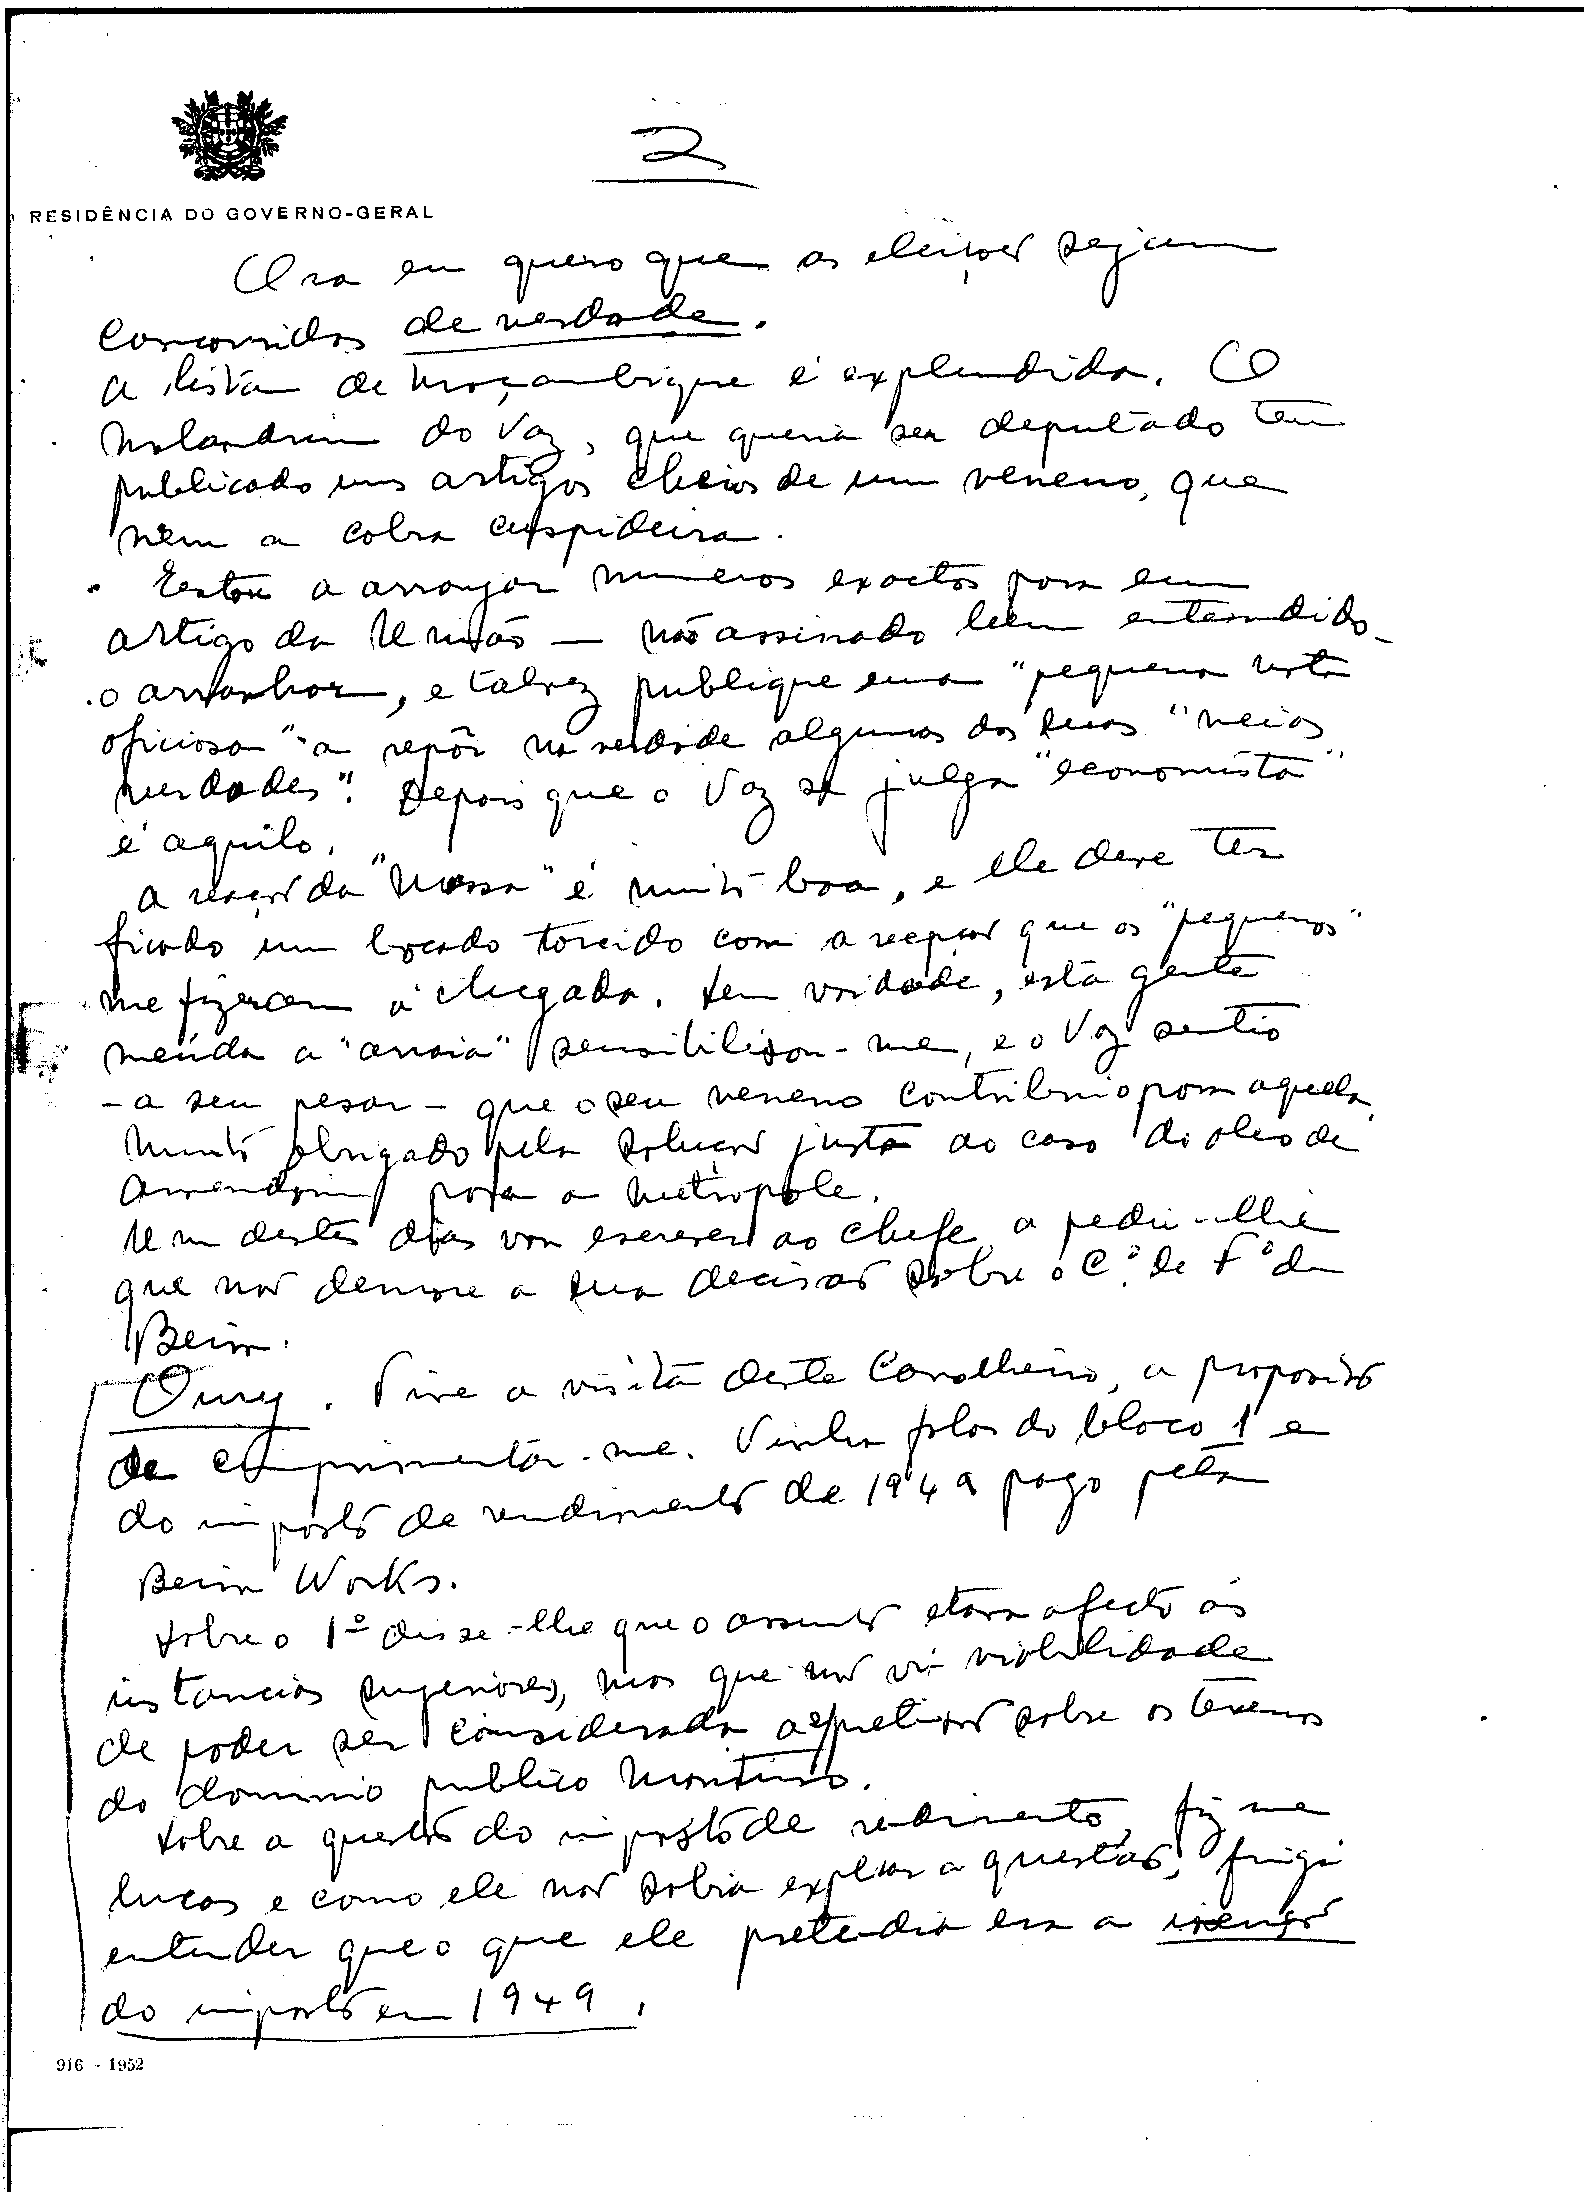 2
RESIDÊNCIA DO GOVERNO-GERAL
Ora eu quero que as eleições sejam
concorridas de verdade.
A lista de Moçambique é explendida. O
malandrim do Vaz, que queria ser deputado tem
publicado uns artigos cheios de um veneno, que
nem a cobra cuspideira.
Estou a arranjar numeros exactos para um
artigo da União — não assinado bem entendido -
o arranhar, e talvez publique uma "pequena nota
oficiosa" a repôr na verdade algumas das suas "meias
verdades". Depois que o Vaz se julga "economista"
é aquilo.
A reação da "Massa" é muito boa, e ele deve ter
ficado um bocado torcido com a recepção que os "pequenos"
me fizeram á chegada. Sem vaidade, esta gente
meúda a "arraia" sensibilizou-me, e o Vaz sentio
- a seu pesar - que o seu veneno contribuio para aquela.
Muito obrigado pela solução justa ao caso do oleo de
amendoim para a metrópole.
Um destes dias vou escrever ao chefe a pedir-lhe
que não demore a sua decisão sobre o C.º de F.º da
Beira.
Oury. Tive a visita deste cavalheiro, a proposito
de cumprimentar-me. Vinha falar do bloco 1 e
do imposto de rendimento de 1949 pago pela
Beira Works.
Sobre o 1º disse-lhe que o assunto estava afecto ás
instancias superiores, mas que não via viabilidade
de poder ser considerada a pretensão sobre os terrenos
do dominio publico maritimo.
Sobre a questão do imposto de rendimento, fiz me
lucas e como ele não sabia explicar a questão, fingi
entender que o que ele pretendia era a isenção
do imposto em 1949.
916 - 1952